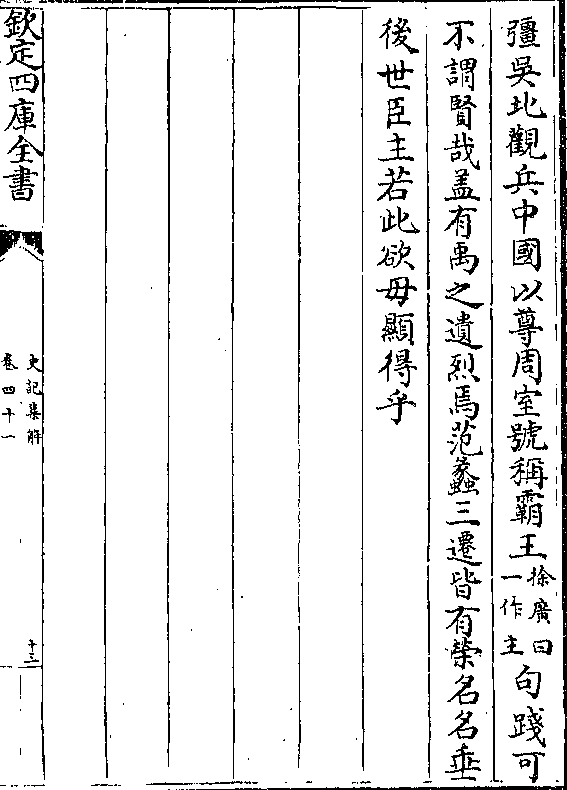 彊吳北觀兵中國以尊周室號稱霸王徐廣曰一作主句踐可
不謂賢哉盖有禹之遺烈焉范蠡三遷皆有榮名名垂
後世臣主若此欲毋顯得乎
欽定四庫全書
史記集解
卷四十一
十三